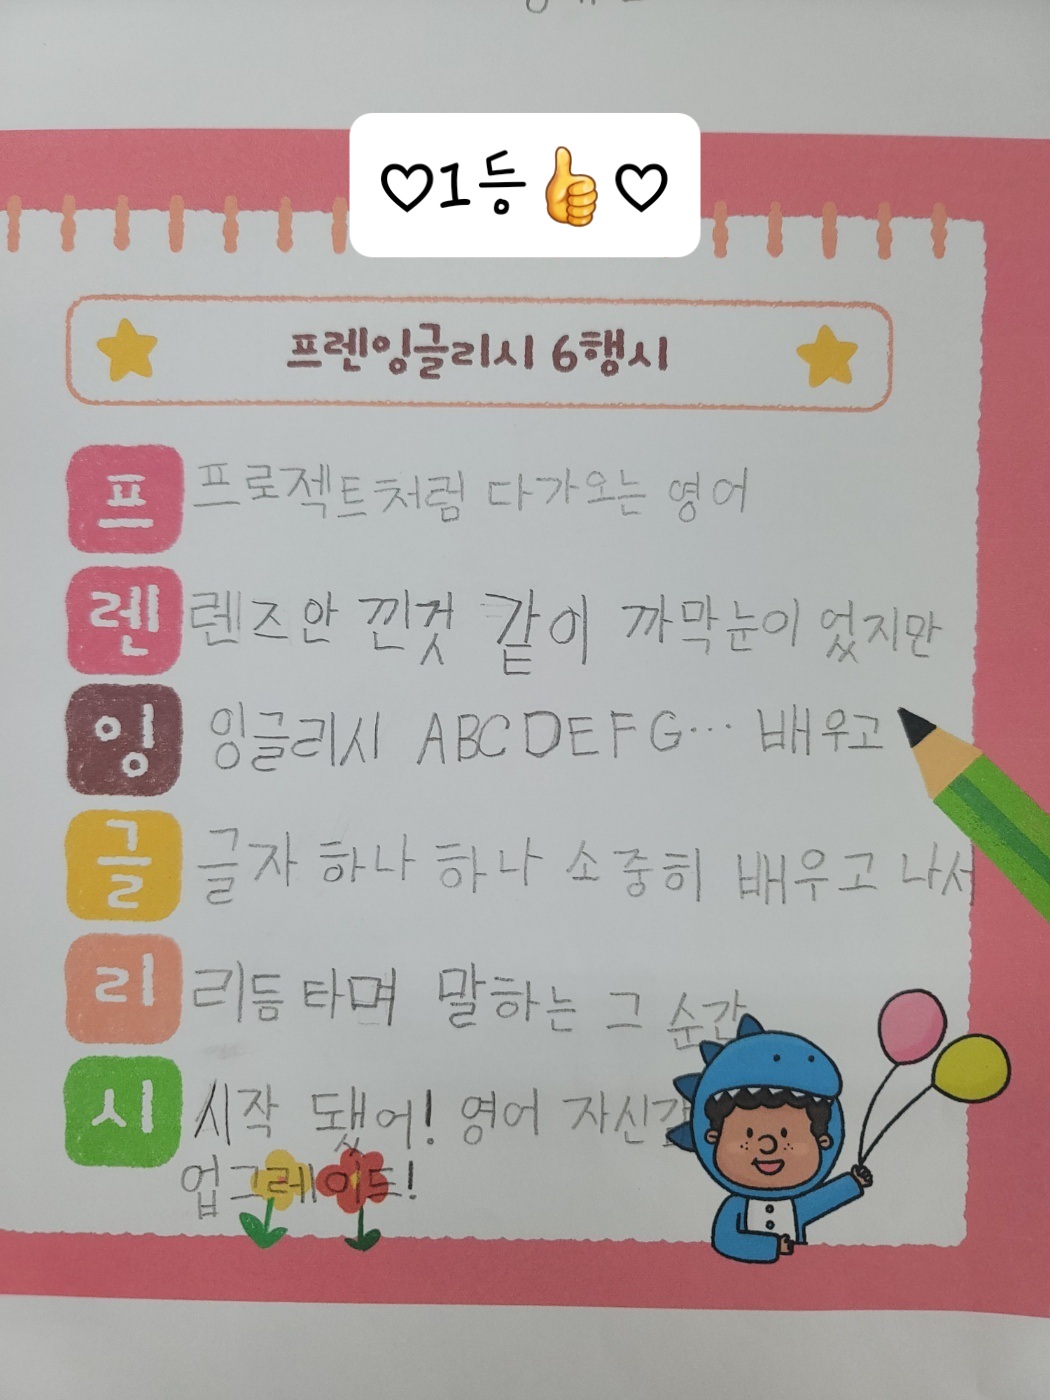 ♡1등👍♡
프렌잉글리시 6행시
프 프로젝트처럼 다가오는 영어
렌 렌즈 안 낀것 같이 까막눈이 었지만
잉 잉글리시 ABCDEFG... 배우고
글 글자 하나 하나 소중히 배우고 나서
리 리듬 타며 말하는 그 순간
시 시작 됐어! 영어 자신감
업그레이드!